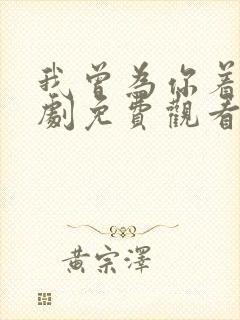 我曾為你着
劇免費觀看
黃宗澤